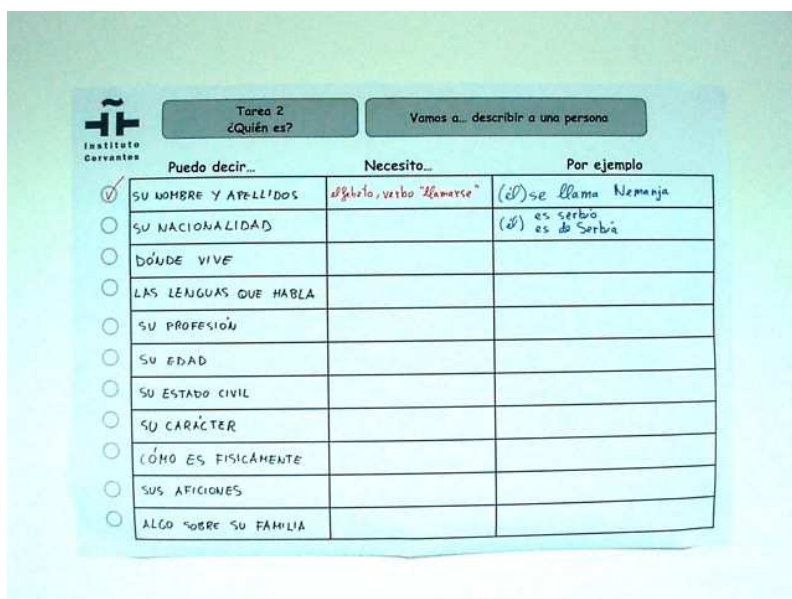 Instituto
Cervantes
Tarea 2
¿Quién es?
Vamos a... describir a una persona
Puedo decir...
Necesito...
Por ejemplo
SU NOMBRE Y APELLIDOS
alfabeto, verbo "llamarse"
(él) se llama Nemanja
SU NACIONALIDAD
(él) es serbio
es de Serbia
DÓNDE VIVE
LAS LENGUAS QUE HABLA
SU PROFESIÓN
SU EDAD
SU ESTADO CIVIL
SU CARÁCTER
CÓMO ES FISICAMENTE
SUS AFICIONES
ALGO SOBRE SU FAMILIA